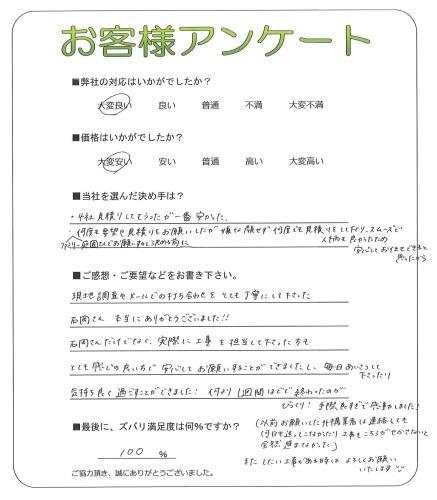 お客様アンケート
■弊社の対応はいかがでしたか？
大変良い 良い 普通 不満 大変不満
■価格はいかがでしたか？
大変安い 安い 普通 高い 大変高い
■当社を選んだ決め手は？
・4社見積りしてもらったが一番安かった。
・何度も要望や見積りをお願いしたが嫌な顔せず何度でも見積りをして下さり、スムーズで
石岡さんでお願いすると決める前に
人柄も良かったため
安心しておまかせできると
思ったから
■ご感想・ご要望などをお書き下さい。
現地調査やメールでの打ち合わせをとても丁寧にして下さった
石岡さん 本当にありがとうございました!!
石岡さんだけでなく、実際に工事を担当して下さった方も
とても感じの良い方で安心してお願いすることができましたし、毎日あいさつして
下さったり
気持ち良く過ごすことができました! 何より1週間ほどで終わったのが
びっくり! 手際良すぎて感動しました!
■最後に、ズバリ満足度は何％ですか？
(以前お願いした外構業者は連絡しても
何日も返ってこなかったり工事もこちらがせかさないと
全然進まなかった)
100 %
また したい工事がある時は よろしくお願い
いたします
ご協力頂き、誠にありがとうございました。